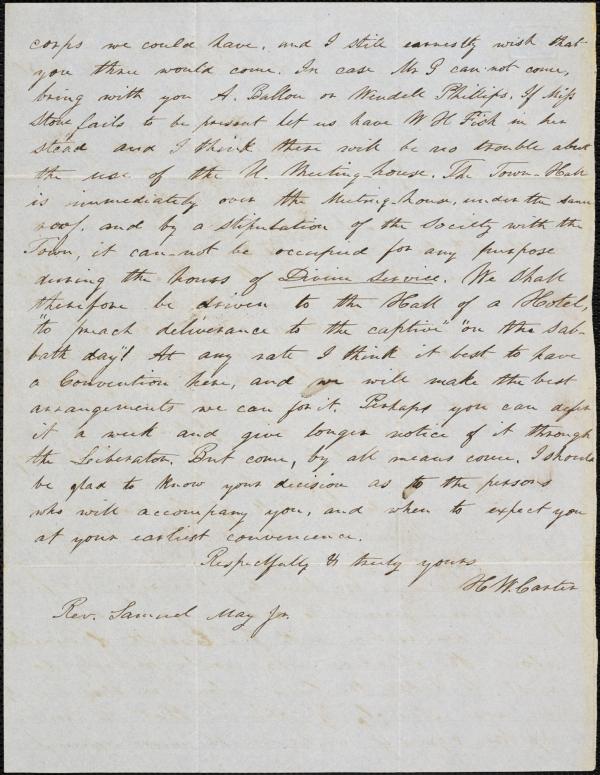 corps we could have, and I still earnestly wish that
you three would come. In case Mr P can-not come,
bring with you A. Ballou or Wendell Phillips. If Miss
Stone fails to be present let us have W H Fish in her
stead and I think there will be no trouble about
the use of the U. Meeting-house. The Town-Hall
is immediately over the Meeting-house, under the same
roof, and by a stipulation of the Society with the
Town, it can-not be occupied for any purpose
during the hours of Divine Service. We shall
therefore be driven to the Hall of a Hotel,
"to preach deliverance to the captive" "on the Sab-
bath day"! At any rate I think it best to have
a Convention here, and we will make the best
arrangements we can for it. Perhaps you can defer
it a week and give longer notice of it through
the Liberator. But come, by all means come. I should
be glad to know your decision as to the persons
who will accompany you, and when to expect you
at your earliest convenience.
Respectfully & truly yours
H. W. Carter
Rev. Samuel May Jr.